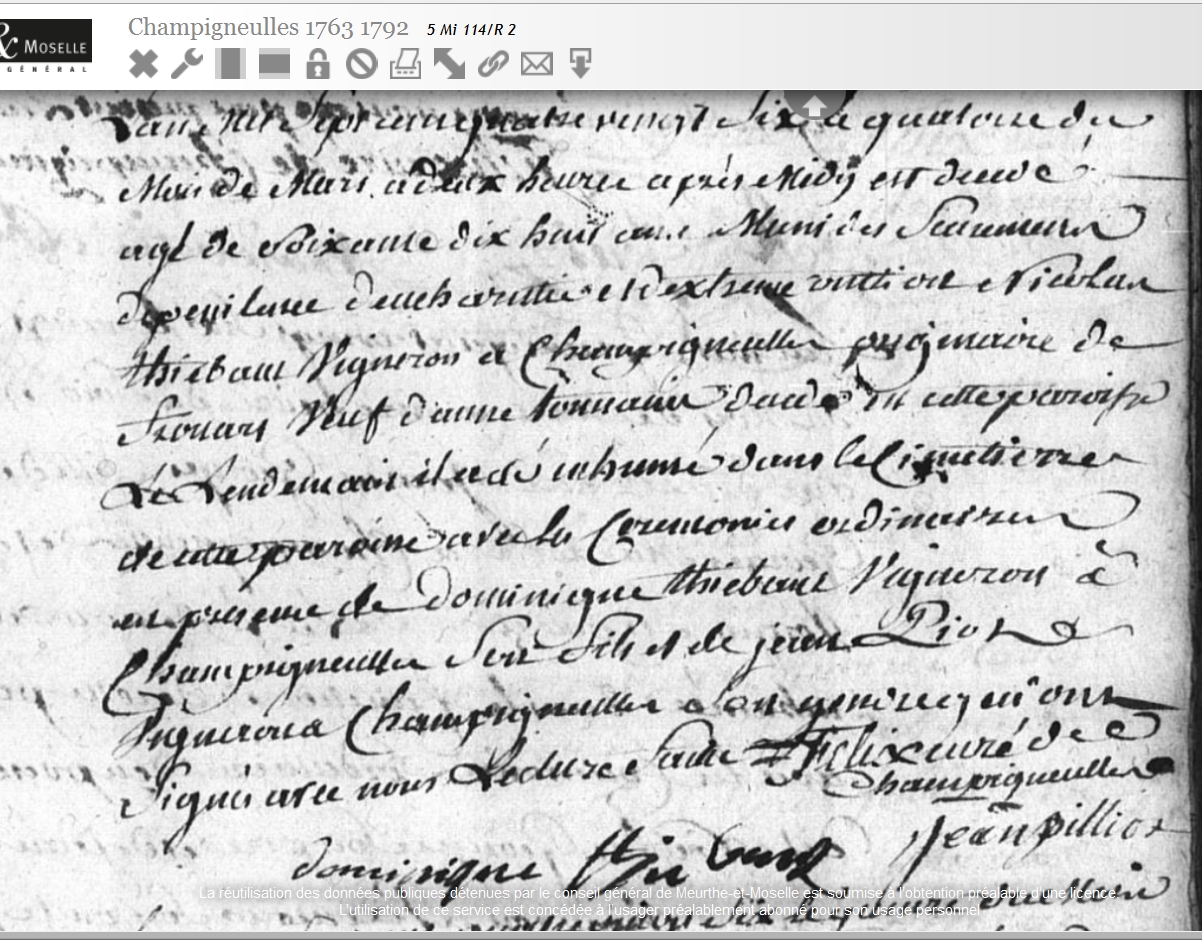 & MOSELLE
GÉNÉRAL
Champigneulles 1763 1792 5 Mi 114/R 2
L'an mil Sept cent quatre vingt Six le quatorze du
Mois de Mars a deux heures après Midy est decedé
agé de Soixante dix huit ans Muni des Sacremens
de penitence d'eucharistie et d'extreme onction Nicolas
thiebaut Vigneron a Champigneulles originaire de
frouart Veuf d'anne decedé en cette paroisse
Le Lendemain il a eté inhumé dans le Cimetierre
de cette paroisse avec les Ceremonies ordinaires
en presence de dominique thiebaut Vigneron à
Champigneulles Son fils et de jean Piot
Vigneron a Champigneulles Son gendre qui ont
Signés avec nous Lecture faite Felix curé de
Champigneulles
jean pilliot
dominique thiebaut
La réutilisation des données publiques détenues par le conseil général de Meurthe-et-Moselle est soumise à l'obtention préalable d'une licence.
L'utilisation de ce service est concédée à l'usager préalablement abonné pour son usage personnel